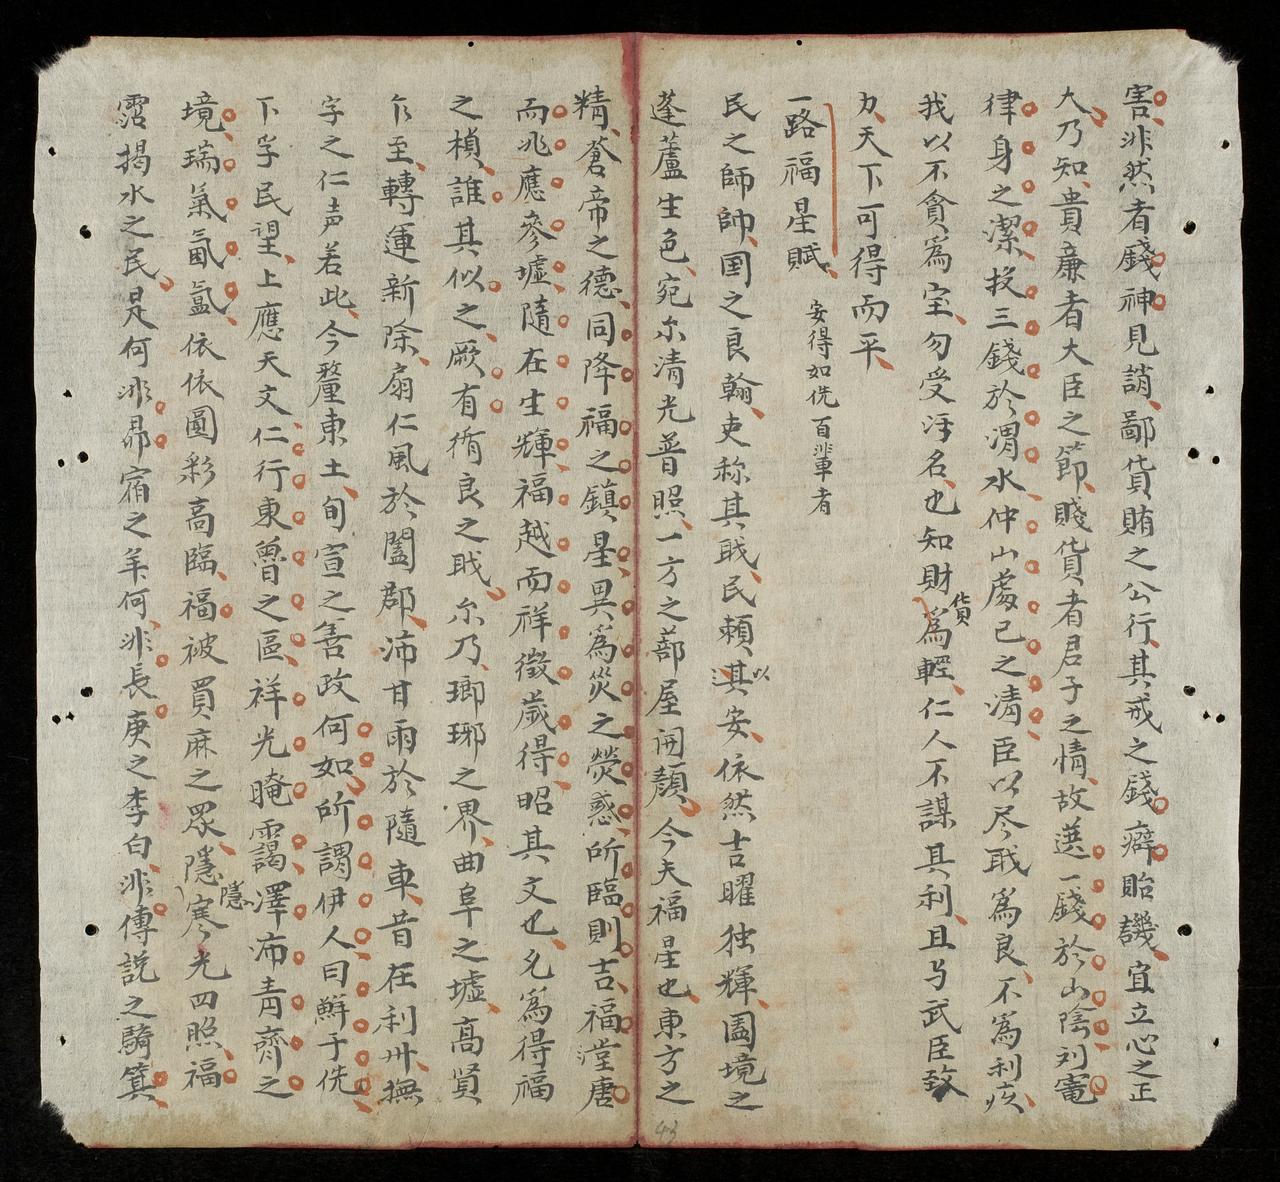 害非然者錢神見誚鄙貨賄之公行其戒之錢癖貽譏宜立心之正
大乃知貴廉者大臣之節賤貨者君子之情故選一錢於山陰刘寵
律身之潔投三錢於渭水仲山處己之清臣以尽職爲良不爲利疚
我以不貪爲宝勿受汙名也知財貨爲輕仁人不謀其利且与武臣致
力天下可得而平
一路福星賦 安得如侁百輩者
民之師帥国之良翰吏称其職民賴以其安依然吉曜独輝闔境之
蓬蘆生色宛尔清光普照一方之蔀屋開顏今夫福星也東方之
精蒼帝之德同降福之鎮星異爲災之熒惑所臨則吉福堂唐
而兆應參墟隨在生輝福越而祥徵歲得昭其文也允爲得福
之楨誰其似之厥有循良之職尔乃瑯琊之界曲阜之墟高賢
乍至轉運新除扇仁風於闔郡沛甘雨於隨車昔在利州撫
字之仁声若此今釐東土旬宣之善政何如所謂伊人曰鮮于侁
下孚民望上應天文仁行東魯之區祥光晻靄澤沛青齊之
境瑞氣氤氳依依圓彩高臨福被買麻之眾隱隱寒光四照福
霑揭水之民是何非昴宿之羊何非長庚之李白非傅説之騎箕
43